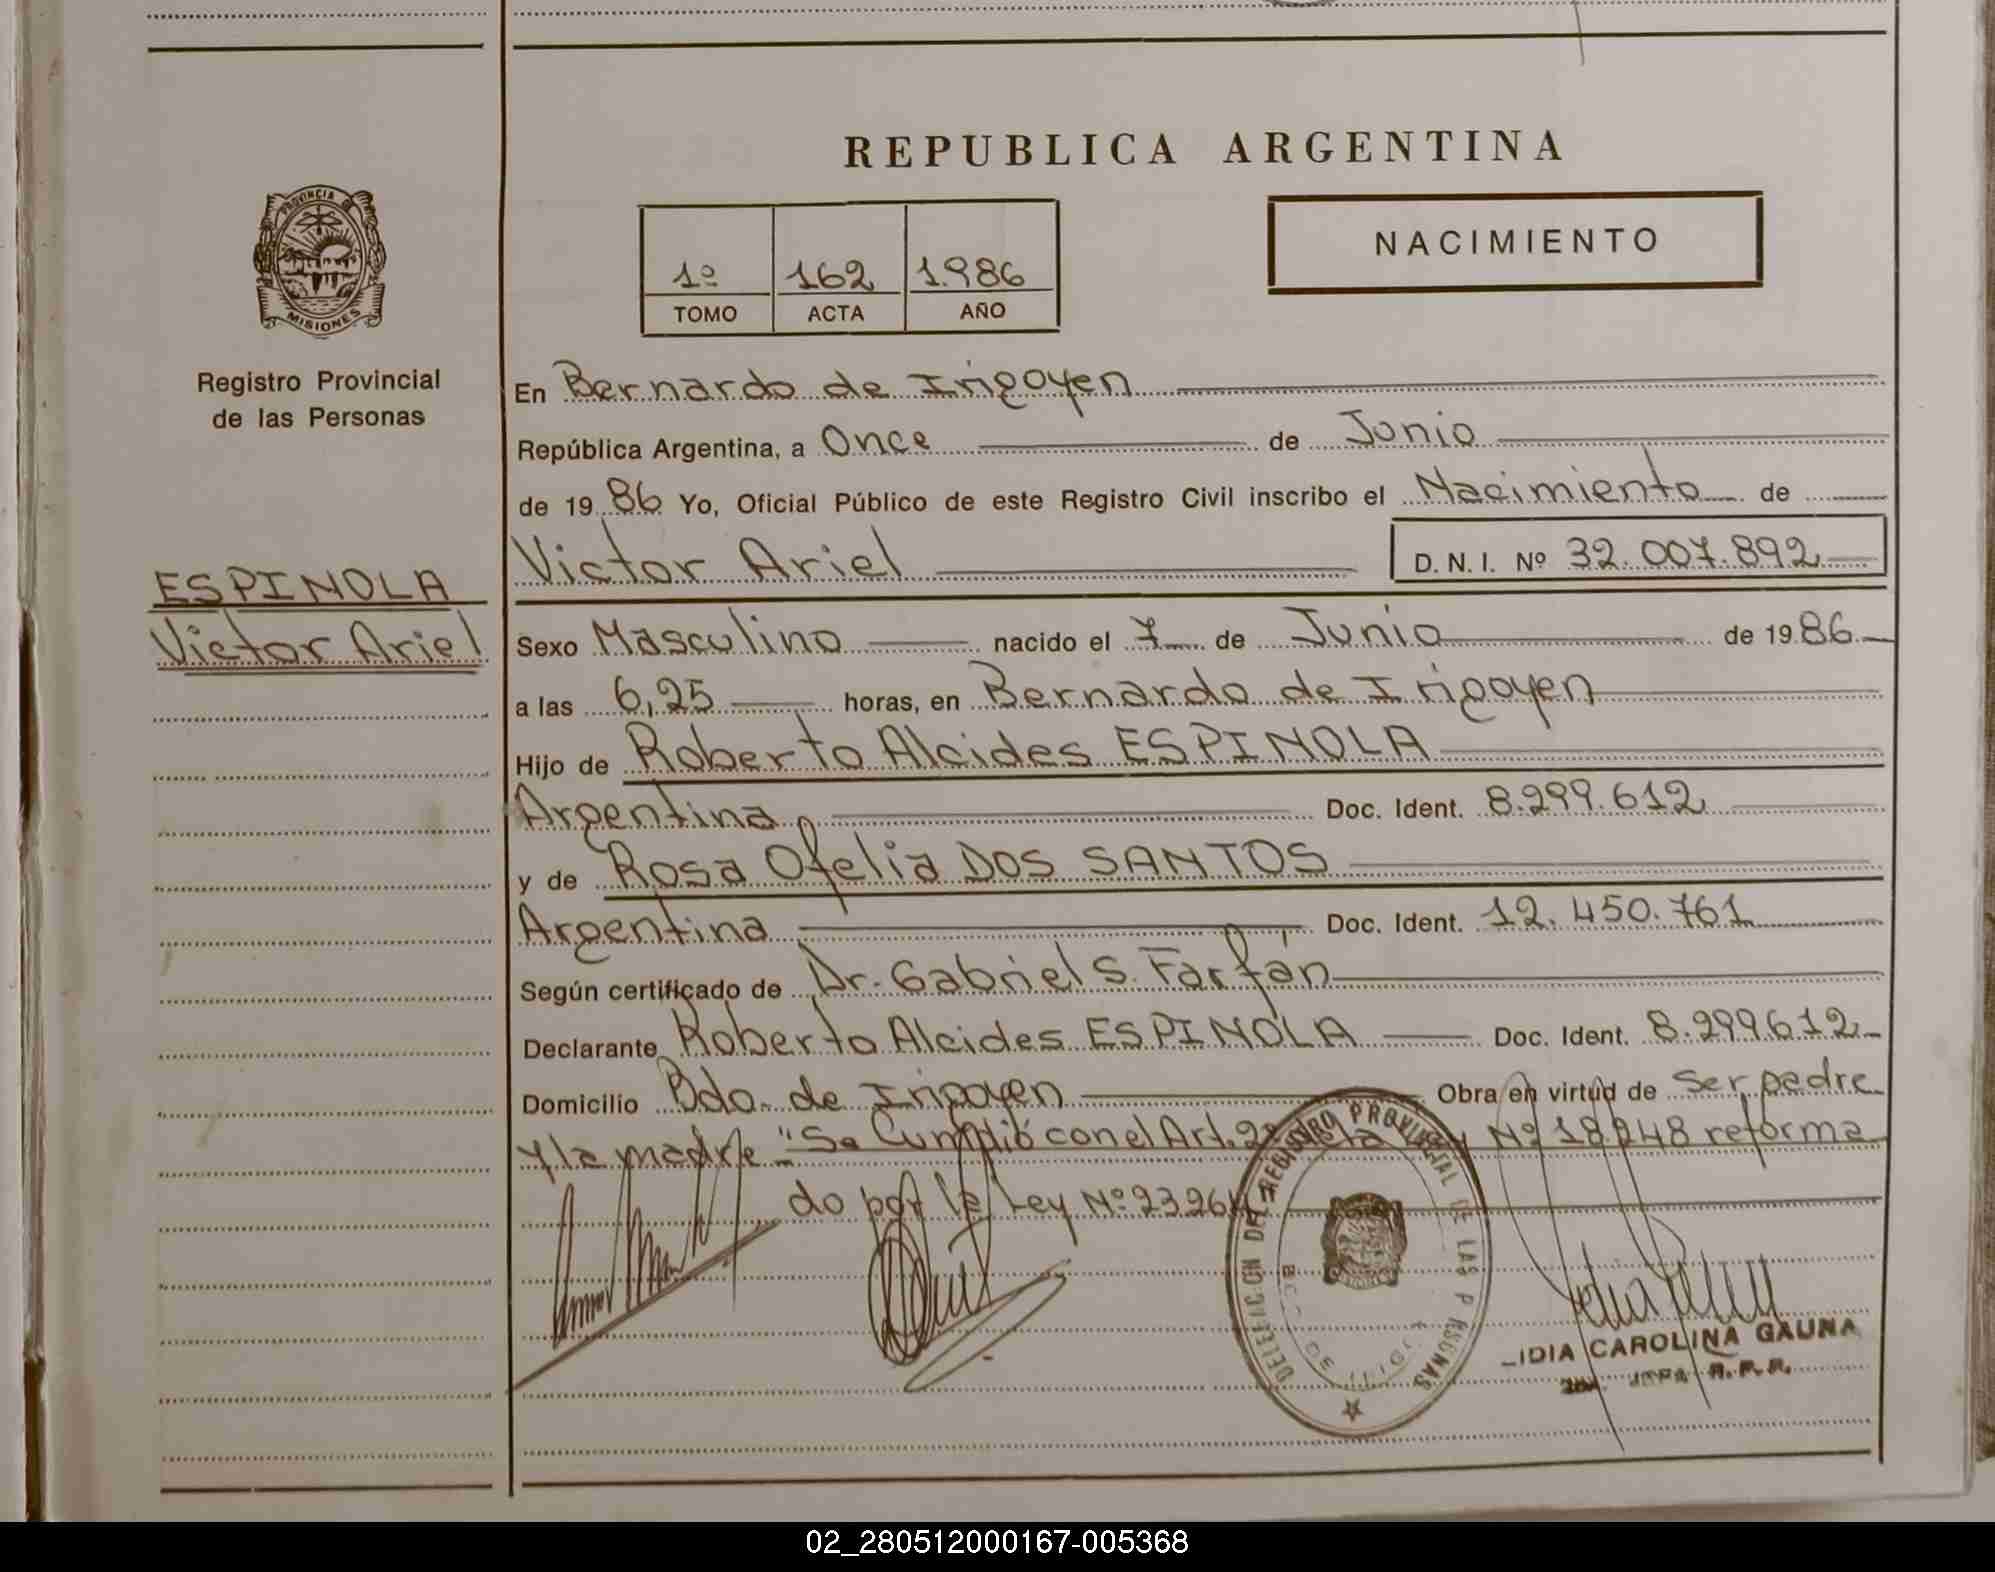 REPUBLICA ARGENTINA
PROVINCIA DE
MISIONES
Registro Provincial
de las Personas
ESPINOLA
Victor Ariel
1º 162 1.986
TOMO ACTA AÑO
NACIMIENTO
En Bernardo de Irigoyen
República Argentina, a Once de Junio
de 19 86 Yo, Oficial Público de este Registro Civil inscribo el Nacimiento de
Victor Ariel D. N. I. Nº 32.007.892
Sexo Masculino nacido el 7 de Junio de 19 86
a las 6,25 horas, en Bernardo de Irigoyen
Hijo de Roberto Alcides ESPINOLA
Argentina Doc. Ident. 8.299.612
y de Rosa Ofelia DOS SANTOS
Argentina Doc. Ident. 12.450.761
Según certificado de Dr. Gabriel S. Farfán
Declarante Roberto Alcides ESPINOLA Doc. Ident. 8.299.612
Domicilio Bdo. de Irigoyen Obra en virtud de ser padre
y la madre "Se Cumplió con el Art. 2º Nº 18.248 reforma
do por la Ley Nº 23.264
DELEGACION DEL REGISTRO PROVINCIAL DE LAS PERSONAS
LIDIA CAROLINA GAUNA
JEFA R.P.P.
02_280512000167-005368